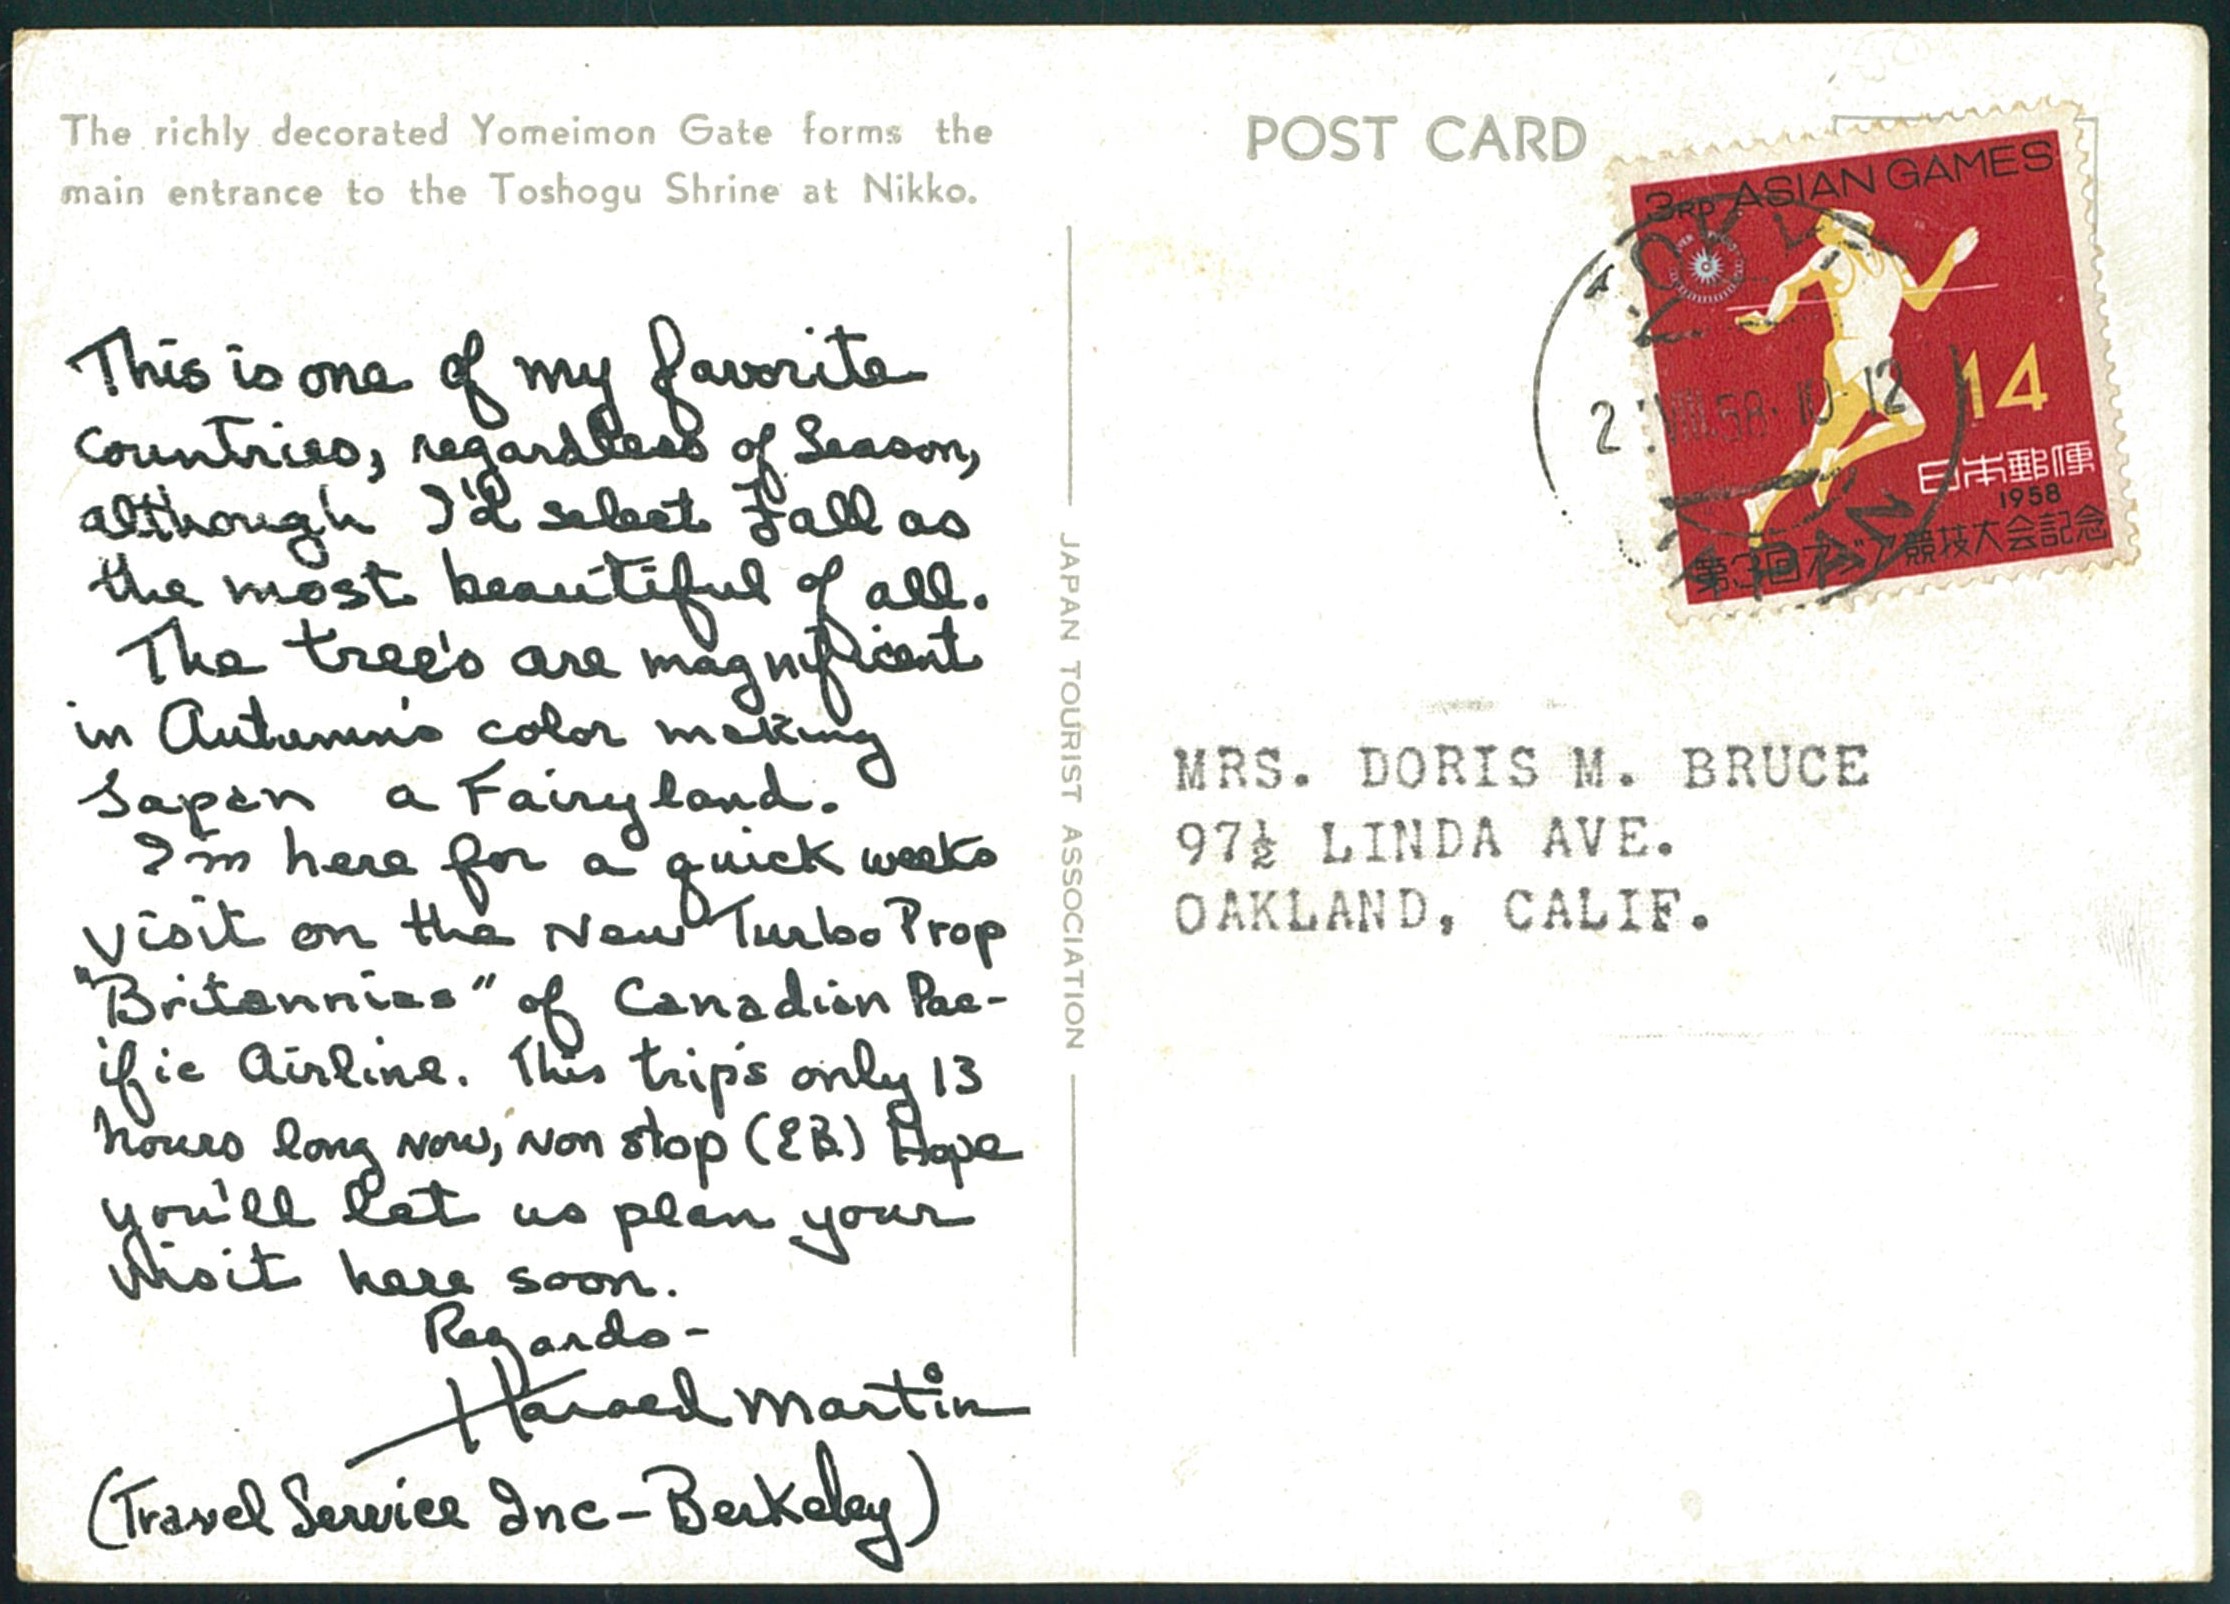 The richly decorated Yomeimon Gate forms the
main entrance to the Toshogu Shrine at Nikko.
This is one of my favorite
countries, regardless of Season,
although I'd select Fall as
the most beautiful of all.
The tree's are magnificent
in Autumn's color making
Japan a Fairyland.
I'm here for a quick weeks
visit on the New Turbo Prop
"Britannias" of Canadian Pac-
ific Airline. This trip's only 13
hours long now, non stop (EB.) Hope
you'll let us plan your
visit here soon.
Regards-
Harold Martin
(Travel Service Inc-Berkeley)
JAPAN TOURIST ASSOCIATION
POST CARD
3RD ASIAN GAMES
14
日本郵便
1958
第3回アジア競技大会記念
VIII.58. 10-12
MRS. DORIS M. BRUCE
97½ LINDA AVE.
OAKLAND, CALIF.